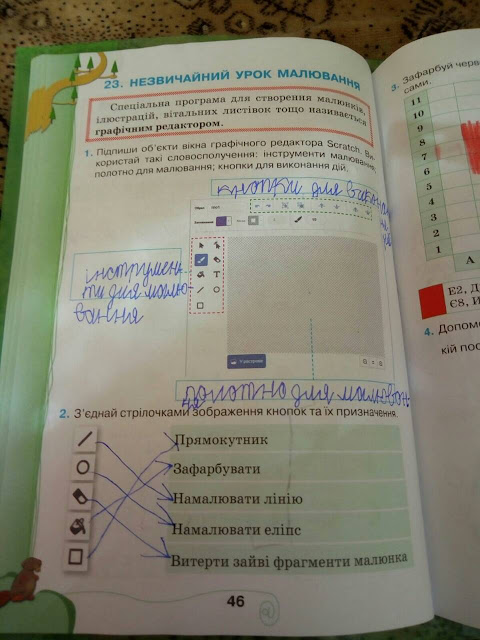 23. НЕЗВИЧАЙНИЙ УРОК МАЛЮВАННЯ
Спеціальна програма для створення малюнків,
ілюстрацій, вітальних листівок тощо називається
графічним редактором.
1. Підпиши об'єкти вікна графічного редактора Scratch. Ви-
користай такі словосполучення: інструменти малювання;
полотно для малювання; кнопки для виконання дій.
кнопки для виконан
ня
інструмен-
ти для малю-
вання
полотно для малюван-
ня
2. З'єднай стрілочками зображення кнопок та їх призначення.
Прямокутник
Зафарбувати
Намалювати лінію
Намалювати еліпс
Витерти зайві фрагменти малюнка
46
3. Зафарбуй черв
сами.
11
10
9
8
7
6
5
4
3
2
1
А
Е2, Д
Є8, И
4. Допомо
кій пос